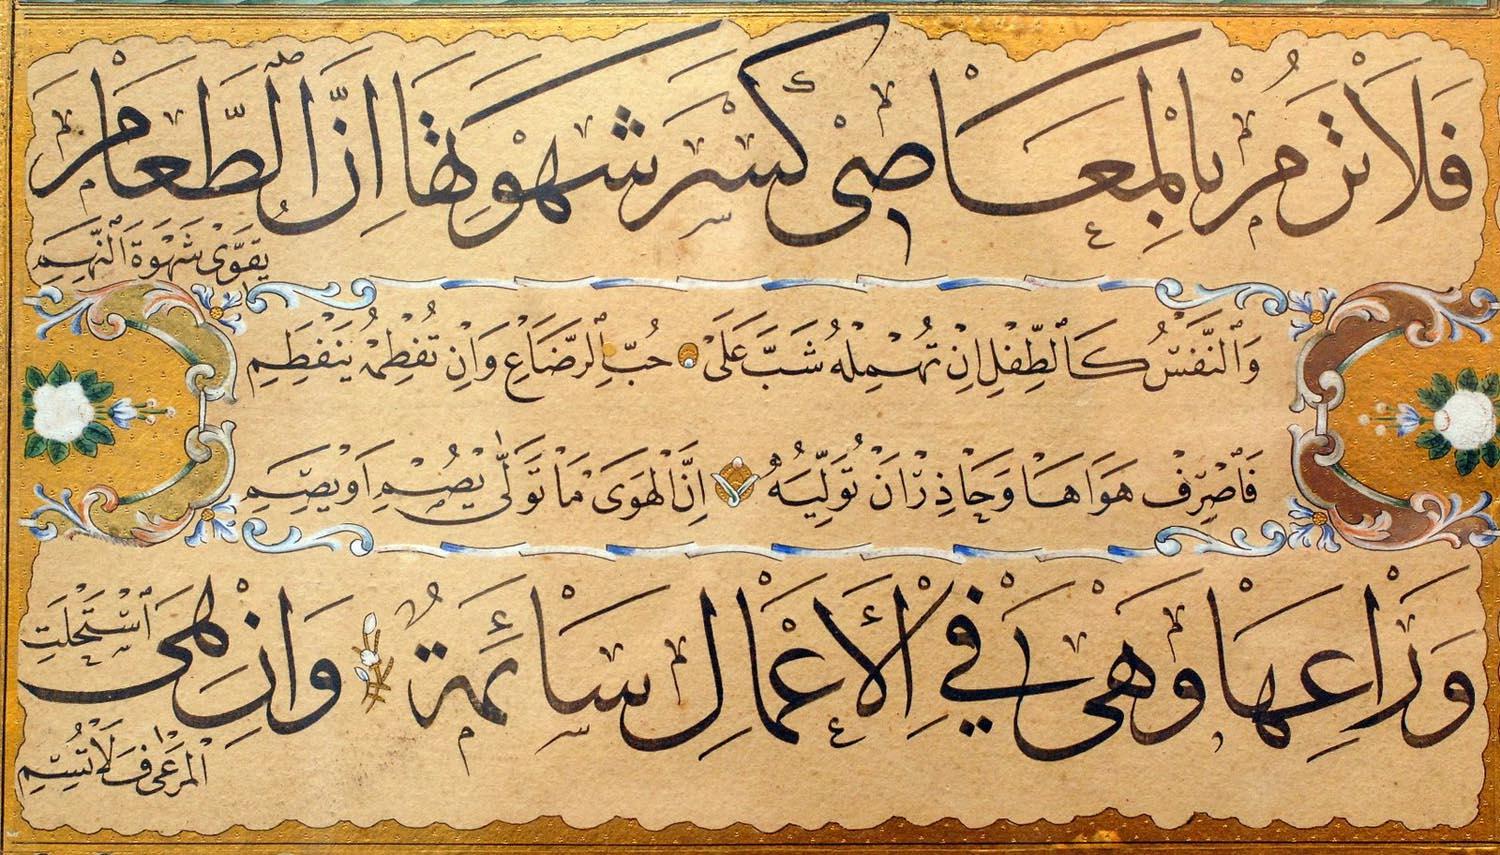 فَلَا تَرُمْ بِالْمَعَاصِى كَسْرَ شَهْوَتِهَا اِنَّ الطَّعَامَ
يُقَوِّى شَهْوَةَ النَّهِمِ
وَالنَّفْسُ كَالطِّفْلِ اِنْ تُهْمِلْهُ شَبَّ عَلَى حُبِّ الرَّضَاعِ وَاِنْ تُفْطِمْهُ يَنْفَطِمِ
فَاصْرِفْ هَوَاهَا وَحَاذِرْ اَنْ تُوَلِّيَهُ اِنَّ الْهَوَى مَا تَوَلَّى يُصْمِ اَوْ يَصِمِ
وَرَاعِهَا وَهْىَ فِى الْاَعْمَالِ سَائِمَةٌ وَاِنْ هِىَ اسْتَحْلَتِ
الْمَرْعَى فَلَا تُسِمِ